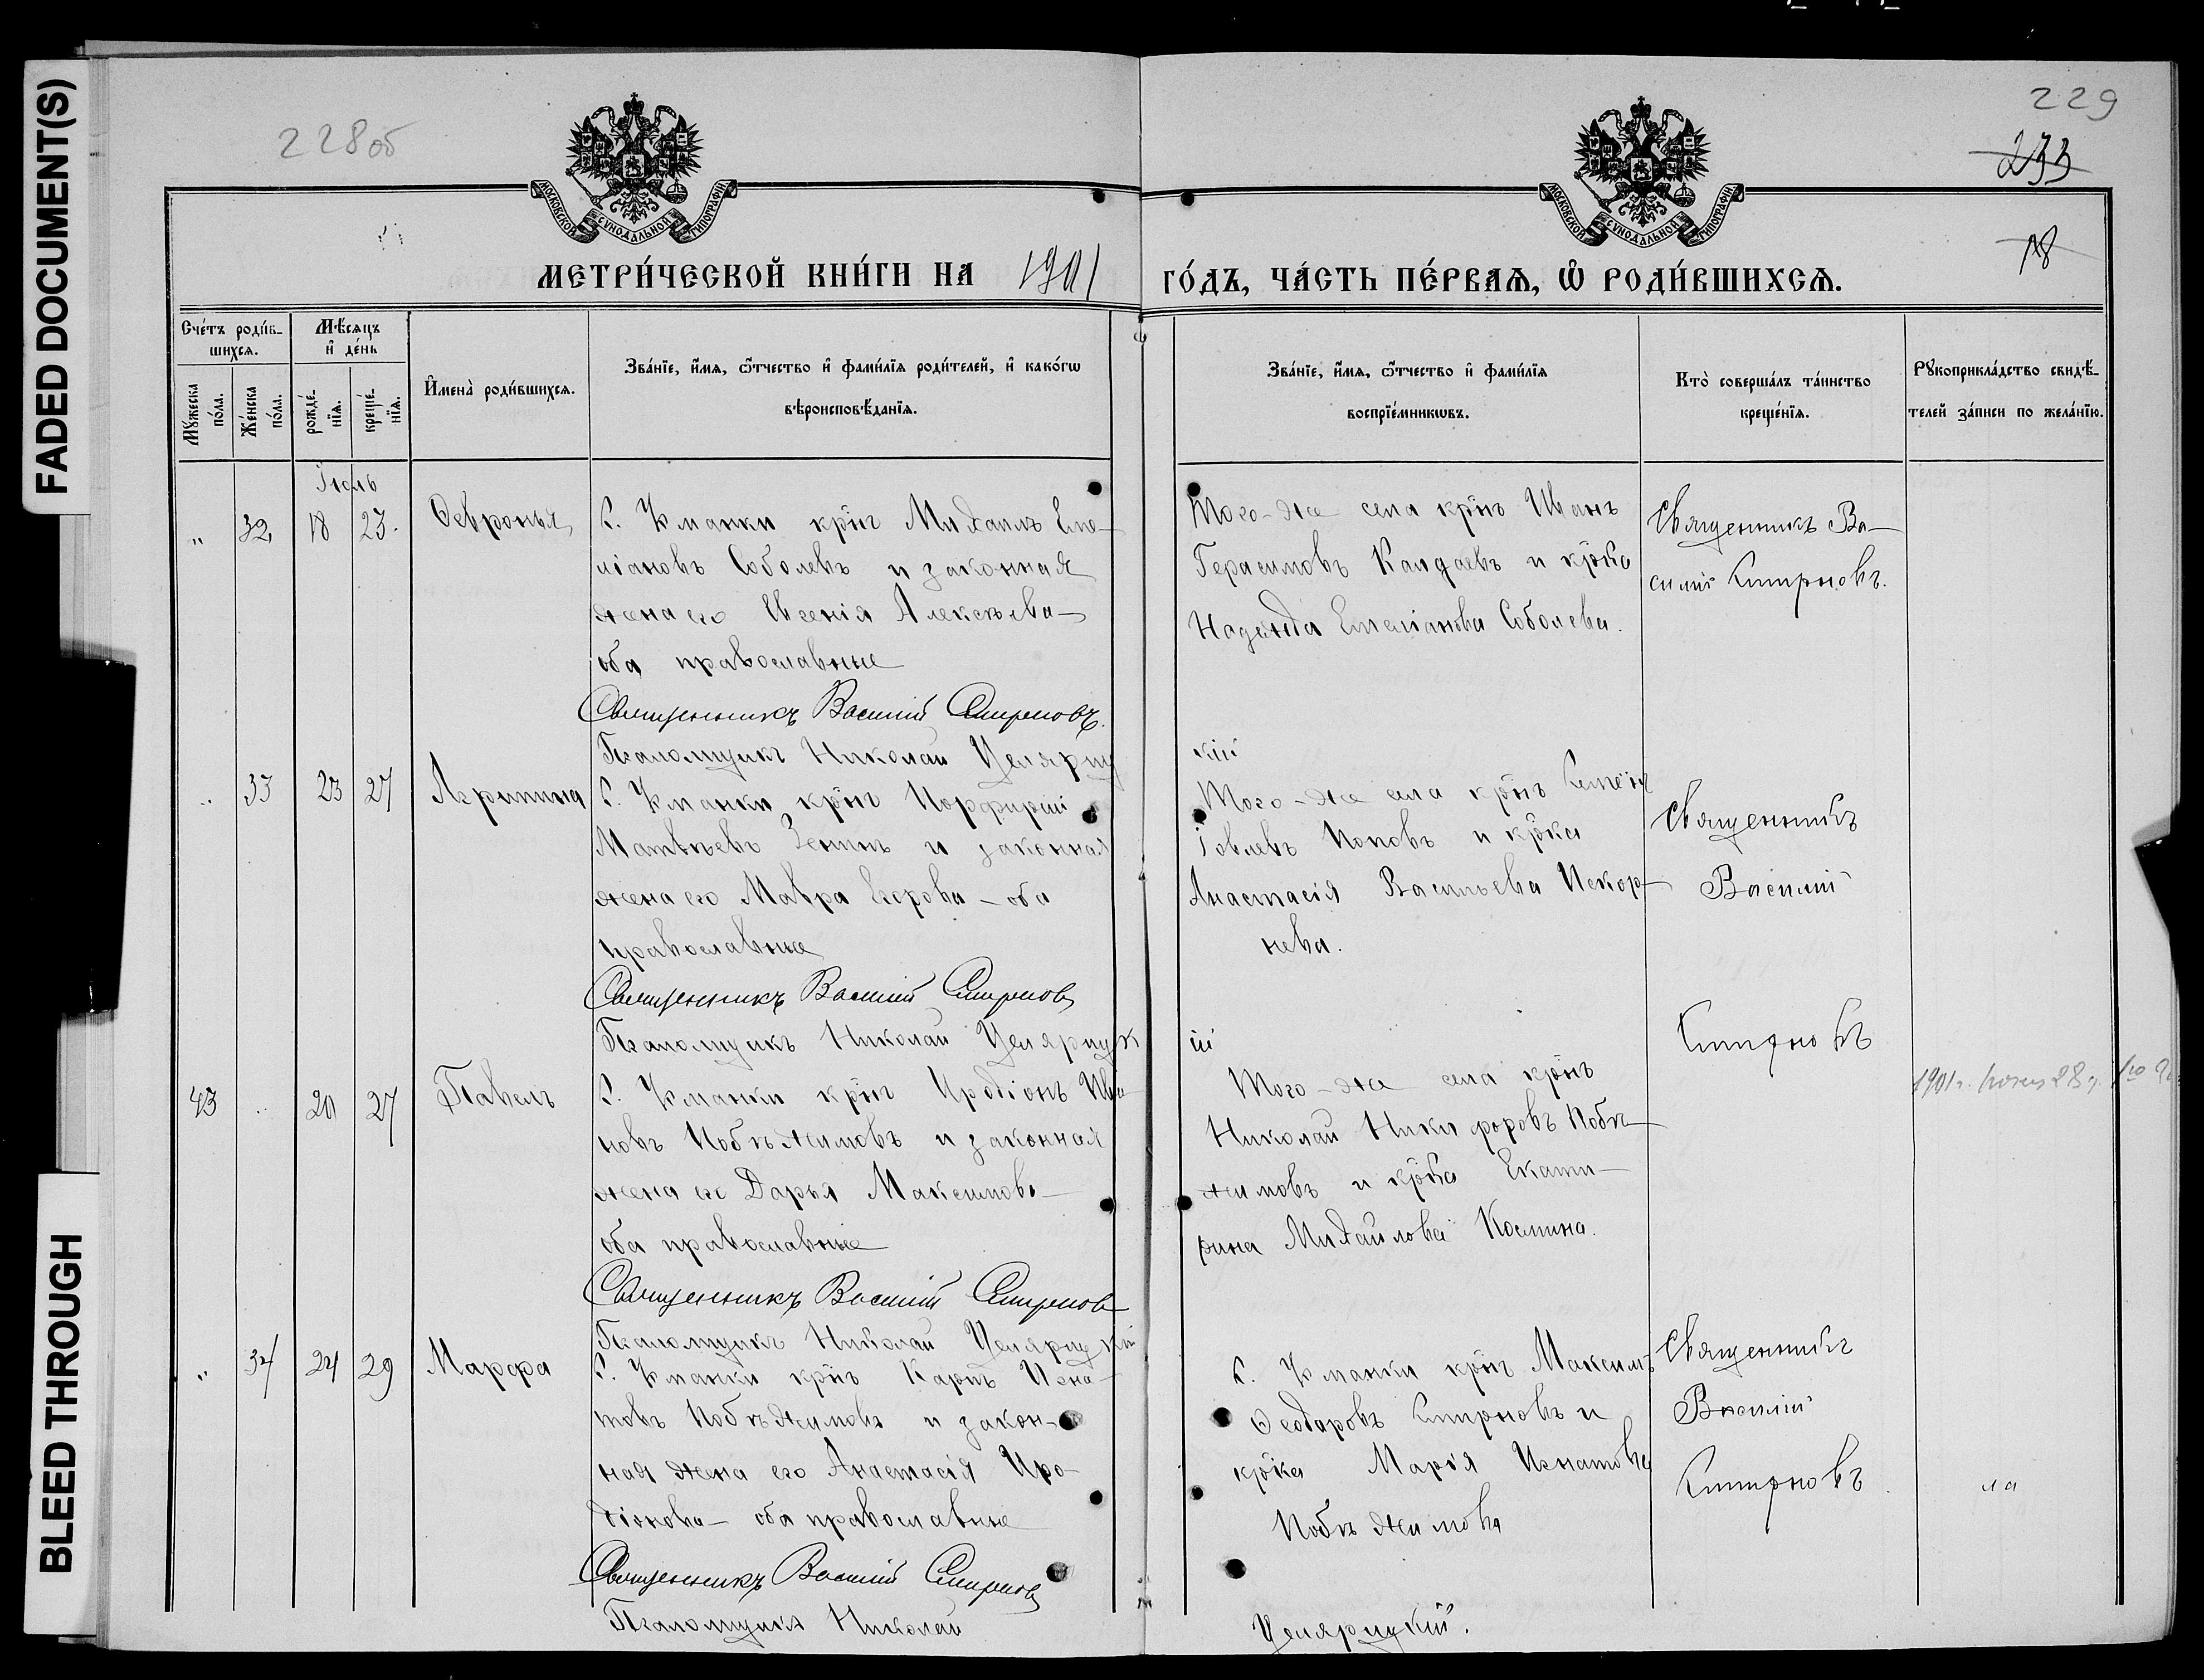 FADED DOCUMENT(S)
BLEED THROUGH
228об
229
233
18
МОСКОВСКОЙ СѴНОДАЛЬНОЙ ТИПОГРАФІИ
МОСКОВСКОЙ СѴНОДАЛЬНОЙ ТИПОГРАФІИ
МЕТРИ́ЧЕСКОЙ КНИ́ГИ НА 1901 ГО́ДЪ, ЧА́СТЬ ПЕ́РВАѦ, Ѡ҆ РОДИ́ВШИХСѦ.
Сче́тъ роди́в-
шихсѧ.
Мꙋ́жеска
по́ла.
Же́нска
по́ла.
Мѣ́сѧцъ
и҆ де́нь
рожде́-
нїѧ.
креще́-
нїѧ.
И҆мена̀ роди́вшихсѧ.
Зва́нїе, и҆́мѧ, ѻ҆́тчество и҆ фами́лїѧ роди́телей, и҆ како́гѡ
вѣроисповѣ́данїѧ.
Зва́нїе, и҆́мѧ, ѻ҆́тчество и҆ фами́лїѧ
воспрїе́мникѡвъ.
Кто̀ соверша́лъ та́инство
креще́нїѧ.
Рꙋкоприкла́дство свидѣ́-
телей за́писи по жела́нїю.
Іюль
" 32 18 23. Ѳевронья
С. Уманки крнъ Михаилъ Еме-
ліановъ Соболевъ и законная
жена его Евгенія Алексѣева—
оба православные
Священникъ Василій Смирновъ.
Псаломщикъ Николай Целяриц
кій
Того-же села крнъ Иванъ
Герасимовъ Калдаевъ и крка
Надежда Емеліанова Соболева.
Священникъ Ва-
силій Смирновъ.
" 33 23 27 Агрипина
С. Уманки крнъ Порфирій
Матвѣевъ Зенинъ и законная
жена его Мавра Егорова – оба
православные
Священникъ Василій Смирновъ
Псаломщикъ Николай Целярицк
ій
Того-же села крнъ Семенъ
Іовлевъ Поповъ и крка
Анастасія Васильева Искор-
нева.
Священникъ
Василій
Смирновъ
43 " 20 27 Павелъ
С. Уманки крнъ Иродіонъ Ива-
новъ Побѣжимовъ и законная
жена его Дарья Максимова—
оба православные
Священникъ Василій Смирновъ
Псаломщикъ Николай Целярицкій
Того-же села крнъ
Николай Никифоровъ Побѣ-
жимовъ и крка Екати-
рина Михайлова Космина.
1901г.
" 34 24 29 Марѳа
С. Уманки крнъ Карпъ Игна-
товъ Побѣжимовъ и закон-
ная жена его Анастасія Иро-
діонова— оба православные
Священникъ Василій Смирновъ
Псаломщикъ Николай
Целярицкій.
С. Уманки крнъ Максимъ
Ѳеодоровъ Смирновъ и
крка Марія Игнатова
Побѣжимова
Священникъ
Василій
Смирновъ